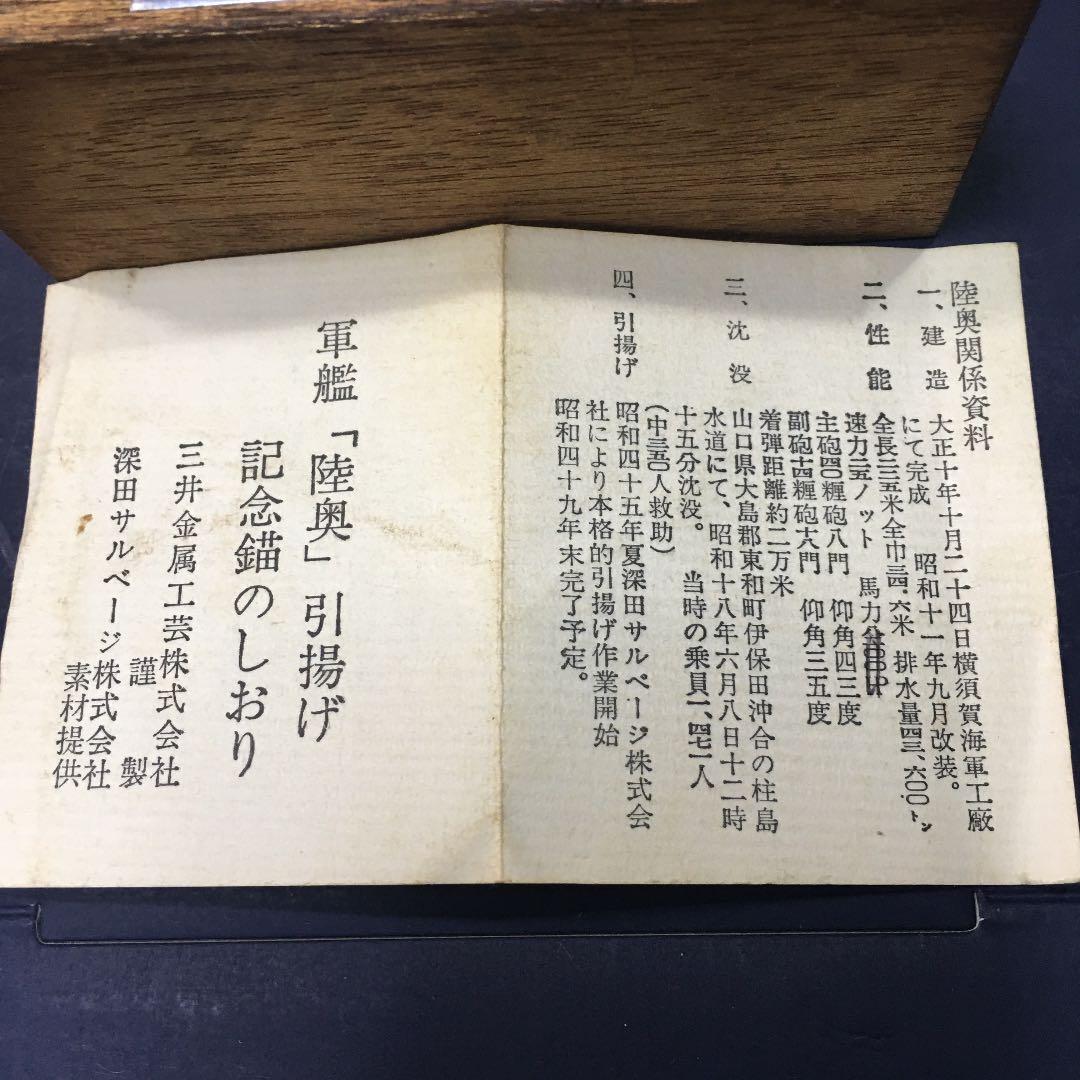 陸奥関係資料
一、建造　大正十年十月二十四日横須賀海軍工廠
にて完成　昭和十一年九月改装。
二、性能　全長二二五米全巾三四.六米　排水量四三、六〇〇トン
速力二五ノット　馬力
主砲四〇糎砲八門　仰角四三度
副砲十四糎砲十八門　仰角三五度
着弾距離約二万米
三、沈没　山口県大島郡東和町伊保田沖合の柱島
水道にて、昭和十八年六月八日十二時
十五分沈没。　当時の乗員一、四七一人
(中三五〇人救助)
四、引揚げ　昭和四十五年夏深田サルベージ株式会
社により本格的引揚げ作業開始
昭和四十九年末完了予定。
軍艦「陸奥」引揚げ
記念錨のしおり
三井金属工芸株式会社
謹製
深田サルベージ株式会社
素材提供